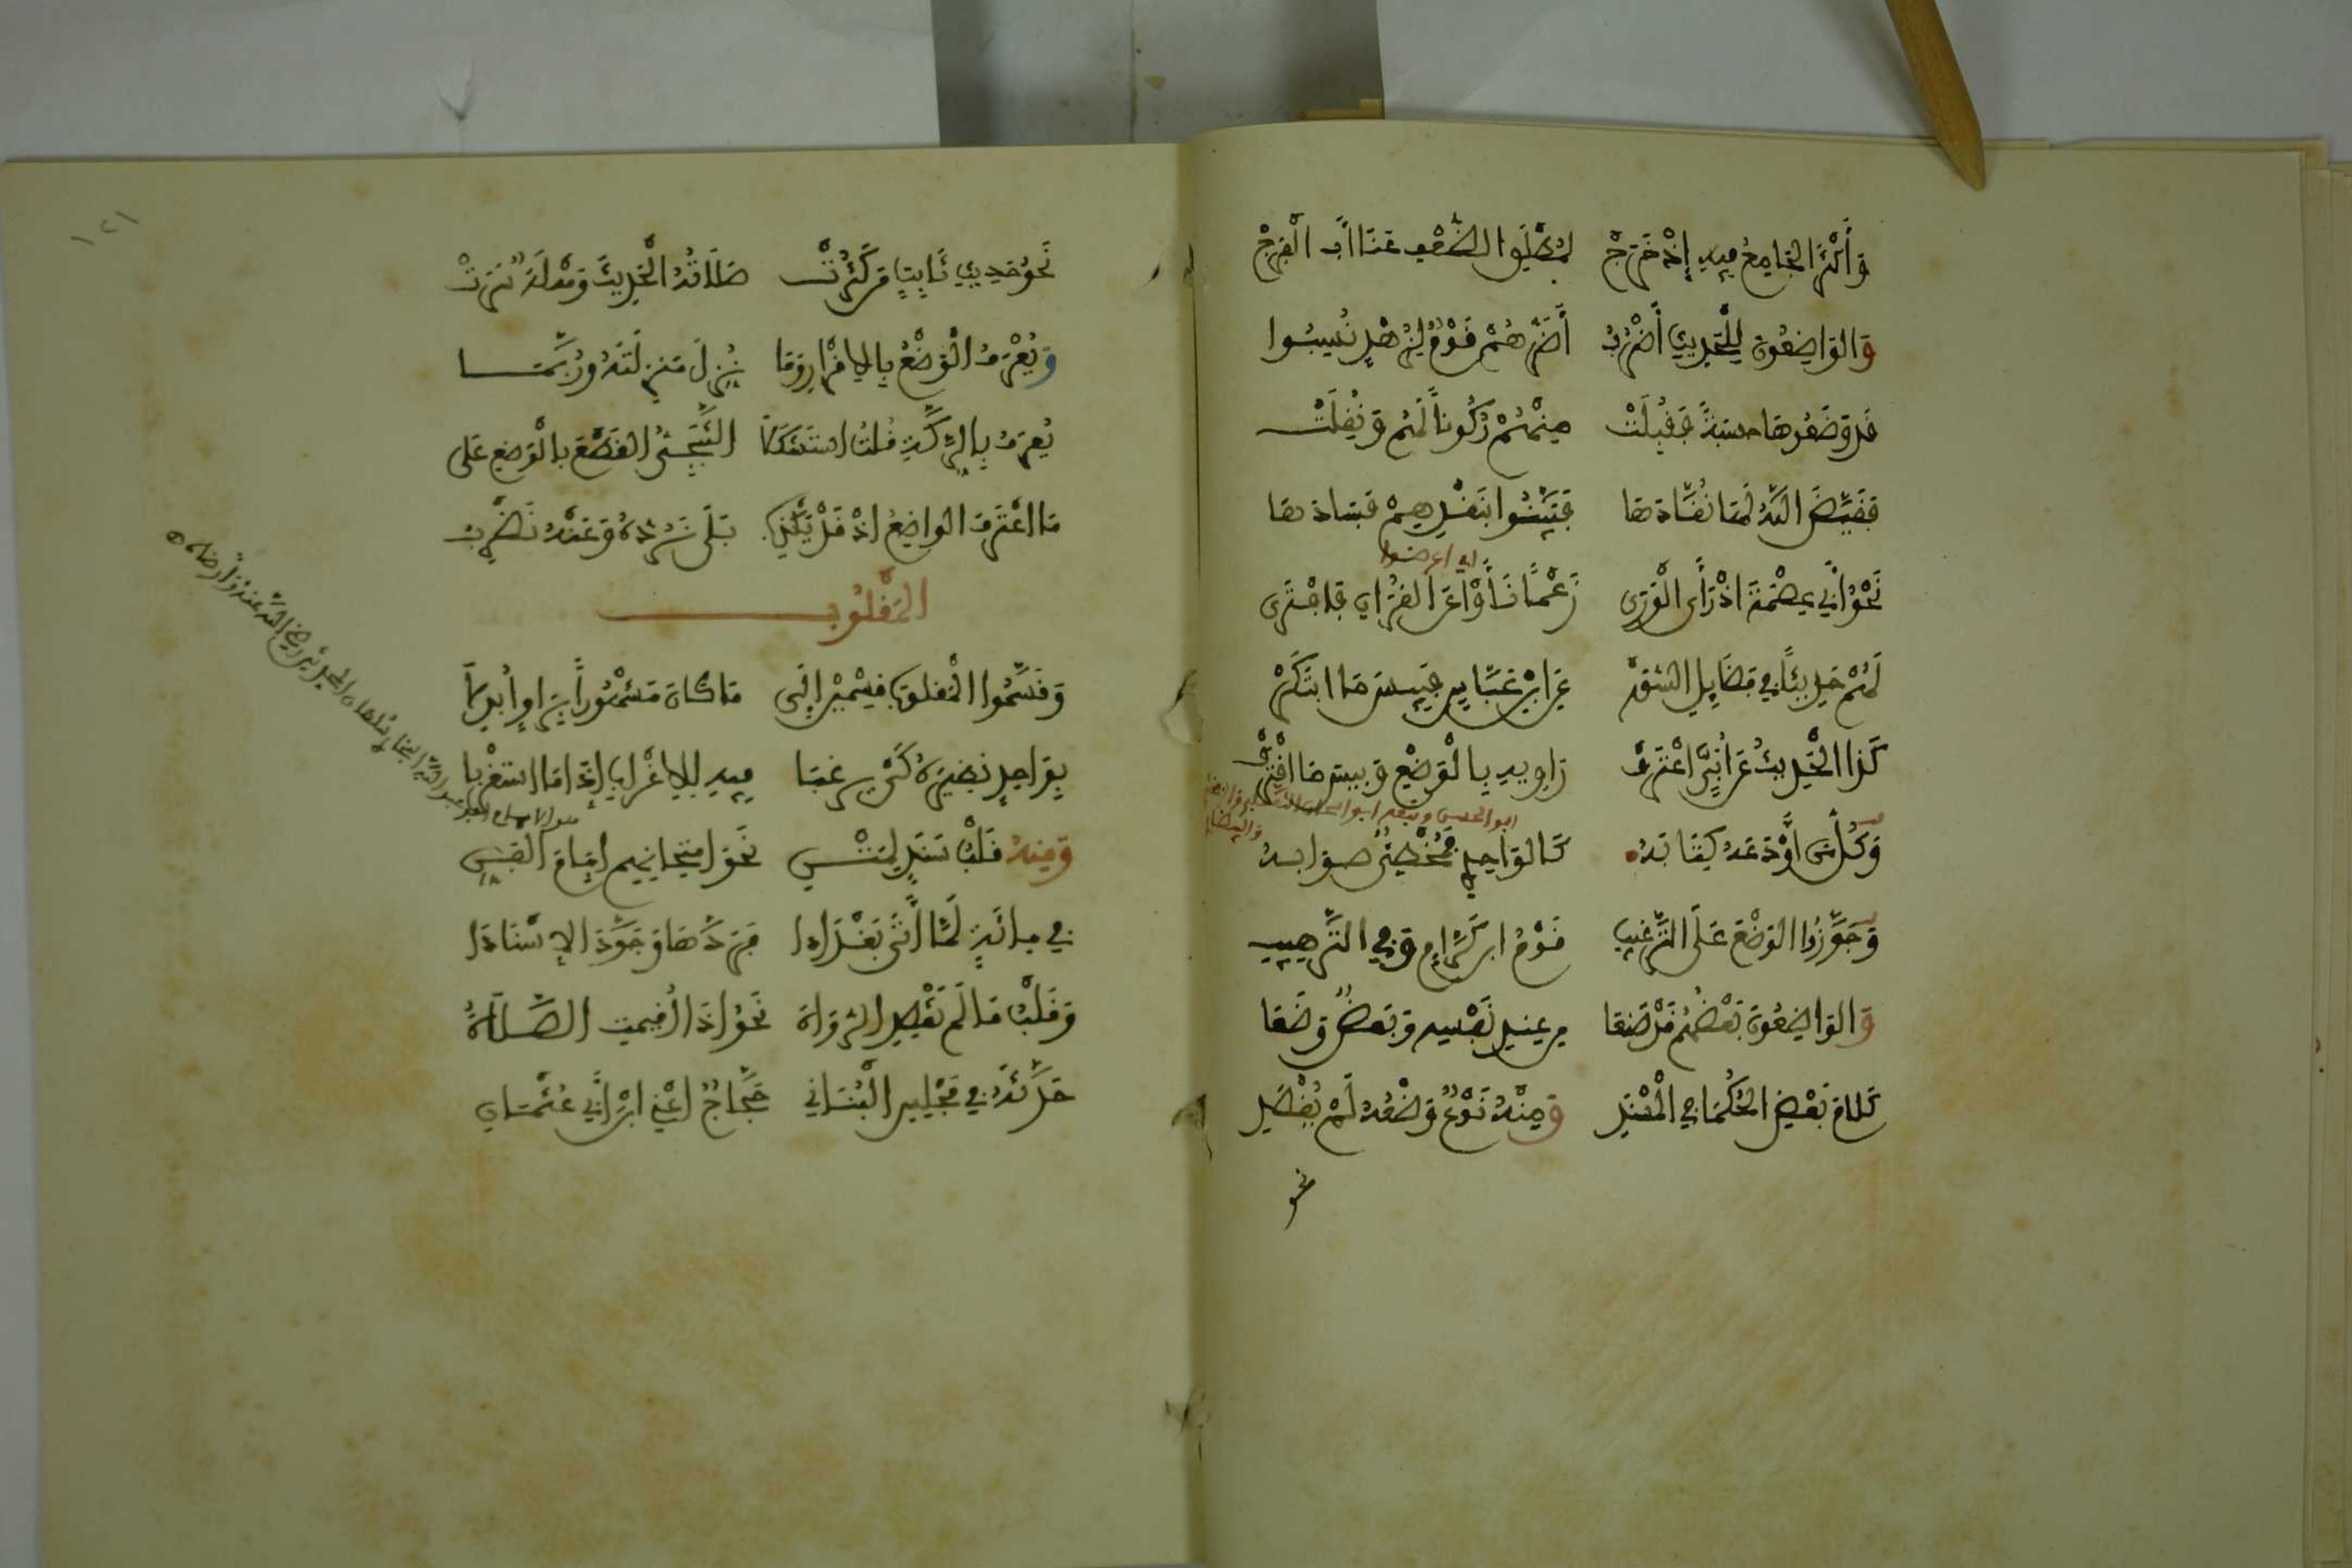 وَأَكْثَرَ الجَامِعُ فِيهِ إِذْ خَرَجْ لِمُطْلَقِ الضَّعْفِ عَنَى أَبَا الْفَرَجْ
وَالوَاضِعُونَ لِلْحَدِيثِ أَضْرُبُ أَضَرُّهُمْ قَوْمٌ لِزُهْدٍ نُسِبُوا
قَدْ وَضَعُوهَا حِسْبَةً فَقُبِلَتْ مِنْهُمْ رُكُوناً لَهُمُ وَنُقِلَتْ
فَقَيَّضَ اللهُ لَهَا نُقَّادَهَا فَبَيَّنُوا بِنَقْدِهِمْ فَسَادَهَا
نَحْوُ أَبِي عِصْمَةَ إِذْ رَأَى الْوَرَى زَعْماً نَأَوْا عَنِ القُرَانِ فَافْتَرَى
اي اعرضوا
لَهُمْ حَدِيثاً فِي فَضَائِلِ السُّوَرْ عَنِ ابْنِ عَبَّاسٍ فَبِيسَ مَا ابْتَكَرْ
كَذَا الْحَدِيثُ عَنْ أُبَيٍّ اعْتَرَفْ رَاوِيهِ بِالْوَضْعِ وَبِيسَ مَا اقْتَرَفْ
ابو الحسن
وَكُلُّ مَنْ أَوْدَعَهُ كِتَابَهُ كَالوَاحِدِيِّ مُخْطِئٌ صَوَابَهُ
وَجَوَّزُوا الوَضْعَ عَلَى التَّرْغِيبِ قَوْمُ ابْنِ كَرَّامٍ وَفِي التَّرْهِيبِ
وَالوَاضِعُونَ بَعْضُهُمْ قَدْ صَنَعَا مِنْ عِنْدِ نَفْسِهِ وَبَعْضٌ وَضَعَا
كَلَامَ بَعْضِ الحُكَمَا فِي الْمُسْنَدِ وَمِنْهُ نَوْعٌ وَضْعُهُ لَمْ يُقْصَدِ
نحو
١٢١
نَحْوُ حَدِيثِ ثَابِتٍ مَنْ كَثُرَتْ صَلَاتُهُ الْحَدِيثَ وَهْلَةٌ سَرَتْ
وَيُعْرَفُ الْوَضْعُ بِالِاقْرَارِ وَمَا نُزِّلَ مَنْزِلَتَهُ وَرُبَّمَا
يُعْرَفُ بِالرِّكَّةِ قُلْتُ اسْتَشْكَلَا الثَّبَجِيُّ القَطْعَ بِالْوَضْعِ عَلَى
مَا اعْتَرَفَ الوَاضِعُ إِذْ قَدْ يَكْذِبُ بَلَى نَرُدُّهُ وَعَنْهُ نُضْرِبُ
المَقْلُوبُ
وَقَسَّمُوا الْمَقْلُوبَ قِسْمَيْنِ إِلَى مَا كَانَ مَشْهُوراً بِرَاوٍ أُبْدِلَا
بِوَاحِدٍ نَظِيرُهُ كَيْ يُرْغَبَا فِيهِ لِلِاغْرَابِ إِذَا مَا اسْتُغْرِبَا
وَمِنْهُ قَلْبُ سَنَدٍ لِمَتْنِ نَحْوُ امْتِحَانِهِمْ إِمَامَ الفَنِّ
فِي مِائَةٍ لَمَّا أَتَى بَغْدَادَا فَرَدَّهَا وَجَوَّدَ الإِسْنَادَا
وَقَلْبُ مَا لَمْ يَقْصِدِ الرُّوَاةُ نَحْوُ إِذَا أُقِيمَتِ الصَّلَاةُ
حَدَّثَهُ فِي مَجْلِسِ الْبُنَانِي حَجَّاجٌ اعْنِي ابْنَ أَبِي عُثْمَانِ